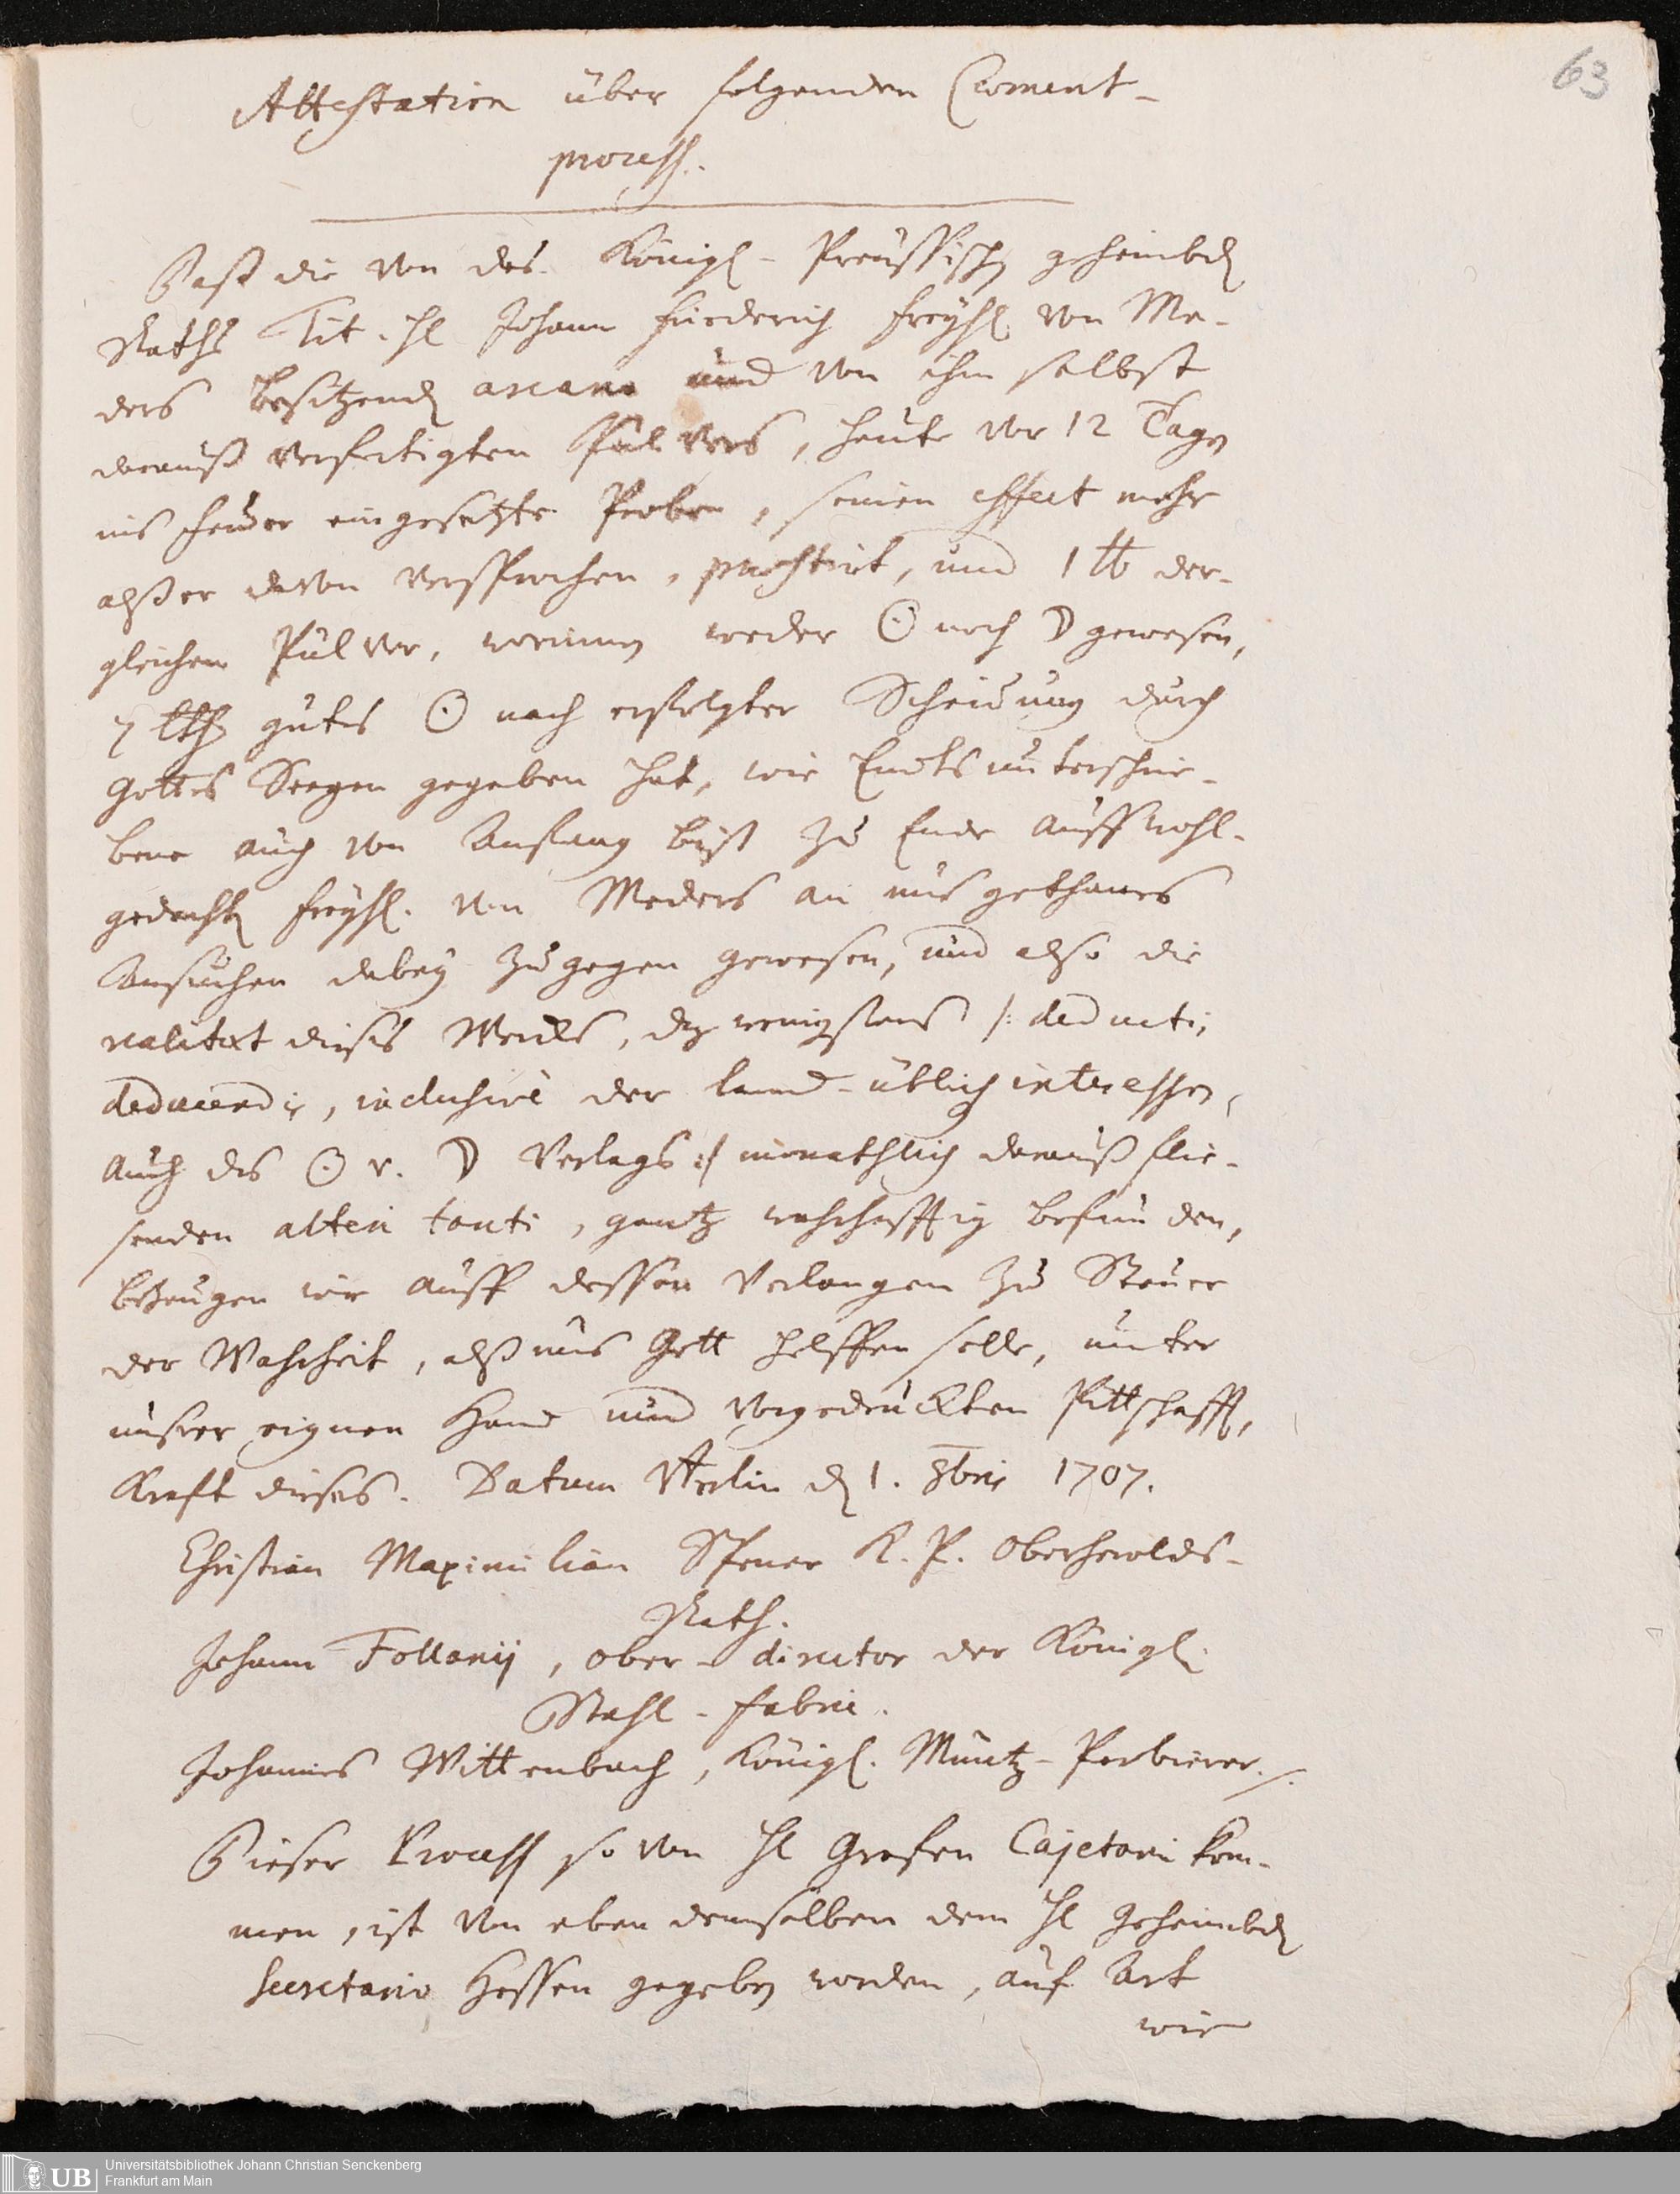 63
Attestation über folgenden Cement-
process.
Daß die von des Königl- Preüssisch geheimbd
Raths Tit. Hl Johann Friederich Freyhl von Me-
ders besitzend arcano und von ihm selbst
darauß verfertigten Pulvers, heute vor 12 Tag
ins Feüer eingesetzte Probe, seinen effect mehr
alß er davon versprochen, praestirt, und 1 ℔ der-
gleichen Pulver, worinn weder ☉ noch ☽ gewesen,
7 lth gutes ☉ nach erfolgter Scheidung durch
Gottes Seegen gegeben hat, wie Endts unterschrie-
bene auch von Anfang biß zu Ende auff wohl-
gedacht Freyhl. von Meders an uns gethanes
Ansuchen dabey zugegen gewesen, und also die
realitaet dieses Wercks, dz wenigstens /: deductis
deducendis, inclusivè der land-üblich interessen,
auch des ☉ u. ☽ Verlags :/ monathlich darauß flie-
senden alteri tanti, gantz wahrhafftig befunden,
bezeugen wir auff dessen Verlangen zu Steuer
der Wahrheit, alß uns Gott helffen solle, unter
unserer eignen Hand und vorgedruckten Pittschafft,
Krafft dieses. Datum Berlin d 1. 8bris 1707.
Christian Maximilian Spener K. P. Oberherolds-
Rath.
Johann Follanij, Ober-director der Königl.
Stahl-fabric.
Johannes Wittenbach, Königl. Müntz-Probierer./.
Dieser Process so von Hl Grafen Cajetani kom-
men, ist von eben demselben dem Hl Geheimbd
Secretario Hessen gegeben worden, auf Art
wie
UB
Universitätsbibliothek Johann Christian Senckenberg
Frankfurt am Main